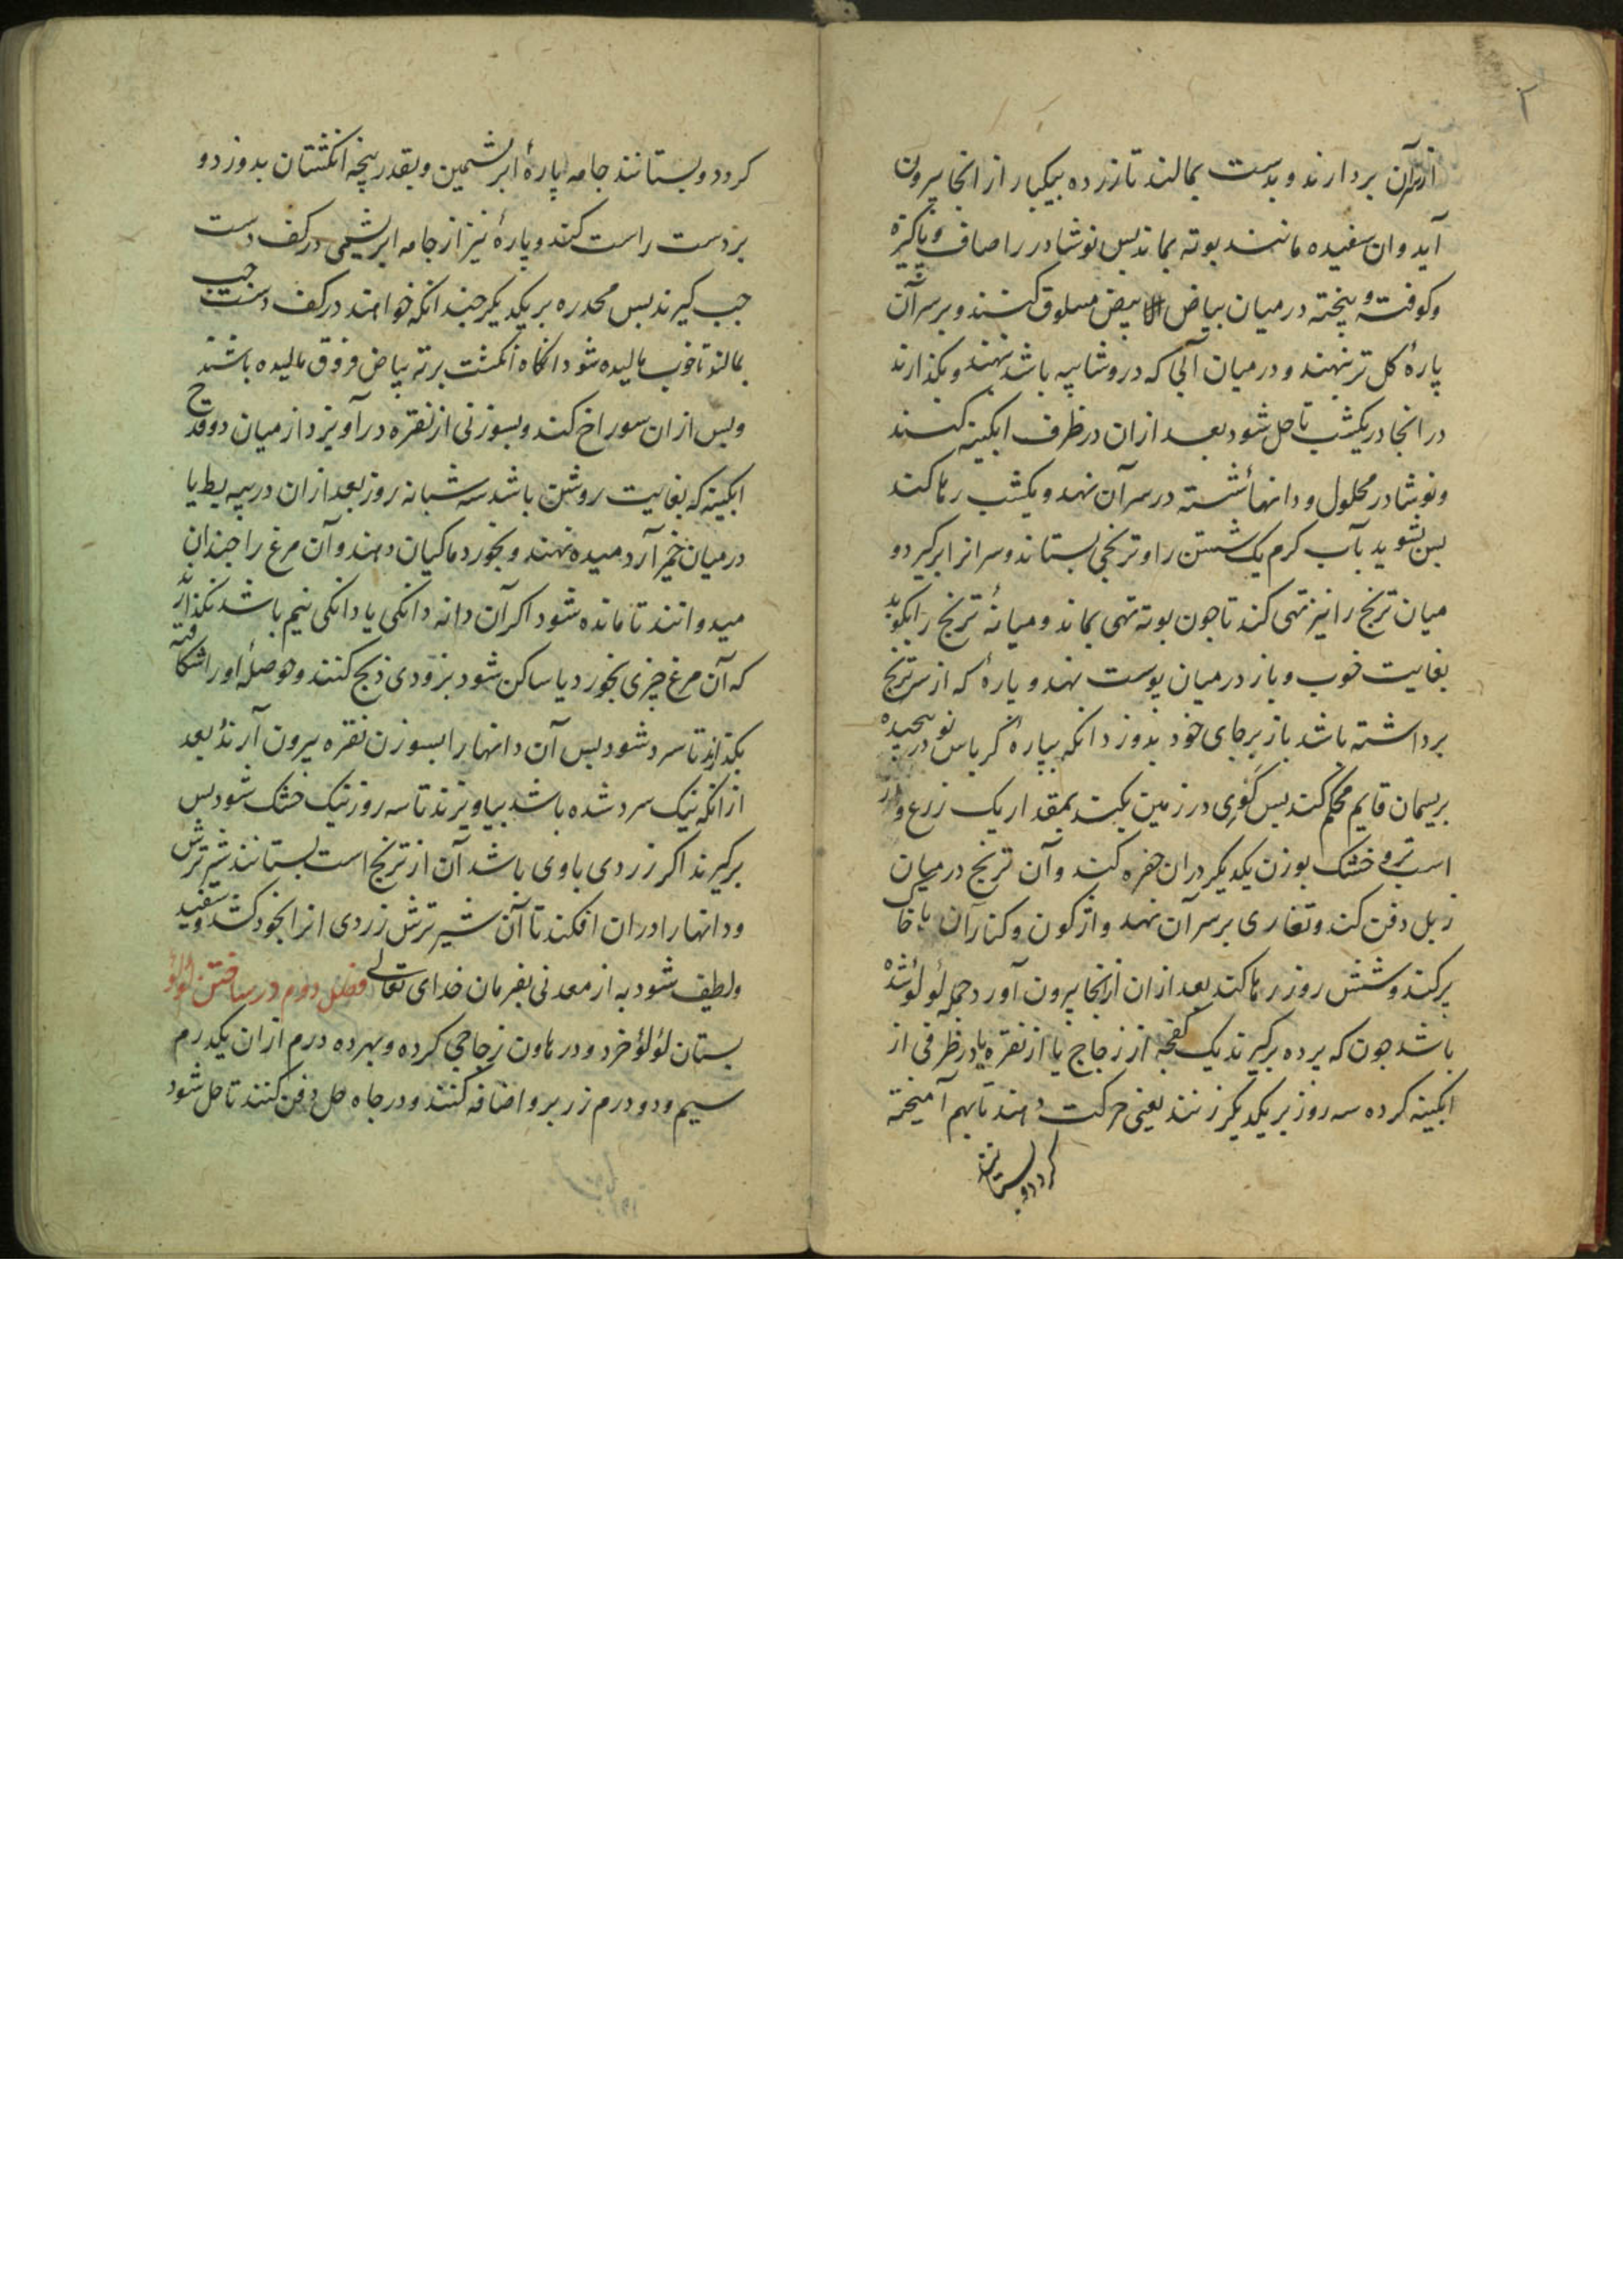 ۲
از سر آن بردارند و بدست بمالند تا زرده بیکبار از انجا بیرون
آید و ان سفیده مانند بوته بماند پس نوشادر را صاف و پاکیزه
و کوفته و پخته در میان بیاض البیض مسلوق کنند و بر سر آن
پارهٔ کل تر نهند و در میان آبی که در و شاسپه باشد نهند و بکذارند
در انجا در یکشب تا حل شود بعد ازان در ظرف ابکینه کنند
و نوشادر محلول و دانها شسته در سر آن نهد و یکشب رها کند
پس بشوید بآب کرم یک شستن را و ترنجی بستاند و سر انرا برکیرد و
میان ترنج را نیز تهی کند تا جون بوته تهی بماند و میانهٔ ترنج را بکوبد
بغایت خوب و باز در میان پوست نهد و پارهٔ که از سر ترنج
برداشته باشد باز بر جای خود بدوزد انکه بپارهٔ کرباس نو در پیچیده
بریسمان قایم محکم کند پس کوی در زمین بکند بمقدار یک زرع و
اسب تر و خشک بوزن یکدیکر دران حفره کند و آن ترنج در میان
زبل دفن کند و تغاری بر سر آن نهد واژکون و کنار آن با خاک
پر کند و شش روز رها کند بعد ازان از انجا بیرون آورد جمله لؤلؤ شده
باشد جون که پرده برکیرند یک کفچه از زجاج یا از نقره یا در ظرفی از
ابکینه کرده سه روز بر یکدیکر زنند یعنی حرکت دهند تا بهم آمیخته
کردد و بستانند
کردد و بستانند جامه پارهٔ ابریشمین و بقدر پنجه انکشتان بدوزد و
بر دست راست کند و پارهٔ نیز از جامه ابریشمی در کف دست
جب کیرند پس محدره بر یکدیکر جندانکه خواهند در کف دست جب
بمالند تا خوب مالیده شود انکاه انکشت بر ته بیاض فروق مالیده باشند
و پس ازان سوراخ کند و بسوزنی از نقره در آویزد از میان دو قدح
ابکینه که بغایت روشن باشد سه شبانه روز بعد ازان در پیه بط یا
در میان خمیر آرد میده نهند و بخورد ماکیان دهند و آن مرغ را جندان
میدوانند تا مانده شود اکر آن دانه دانکی یا دانکی نیم باشد نکذارند
که آن مرغ جیزی بخورد یا ساکن شود بزودی ذبح کنند و حوصلهٔ او را شکافته
بکذارند تا سرد شود پس آن دانها را بسوزن نقره بیرون آرند بعد
ازانکه نیک سرد شده باشد بیاویزند تا سه روز نیک خشک شود پس
برکیرند اکر زردی باوی باشد آن از ترنج است بستانند شیر ترش
و دانها را دران افکند تا آن شیر ترش زردی انرا بخود کشد و سفید
و لطیف شود به از معدنی بفرمان خدای تعالی فصل دوم در ساختن لؤلؤ
بستان لؤلؤ خرد و در هاون زجاجی کرده و بهر ده درم ازان یکدرم
سیم و دو درم زر برو اضافه کنند و در جاه حل دفن کنند تا حل شود